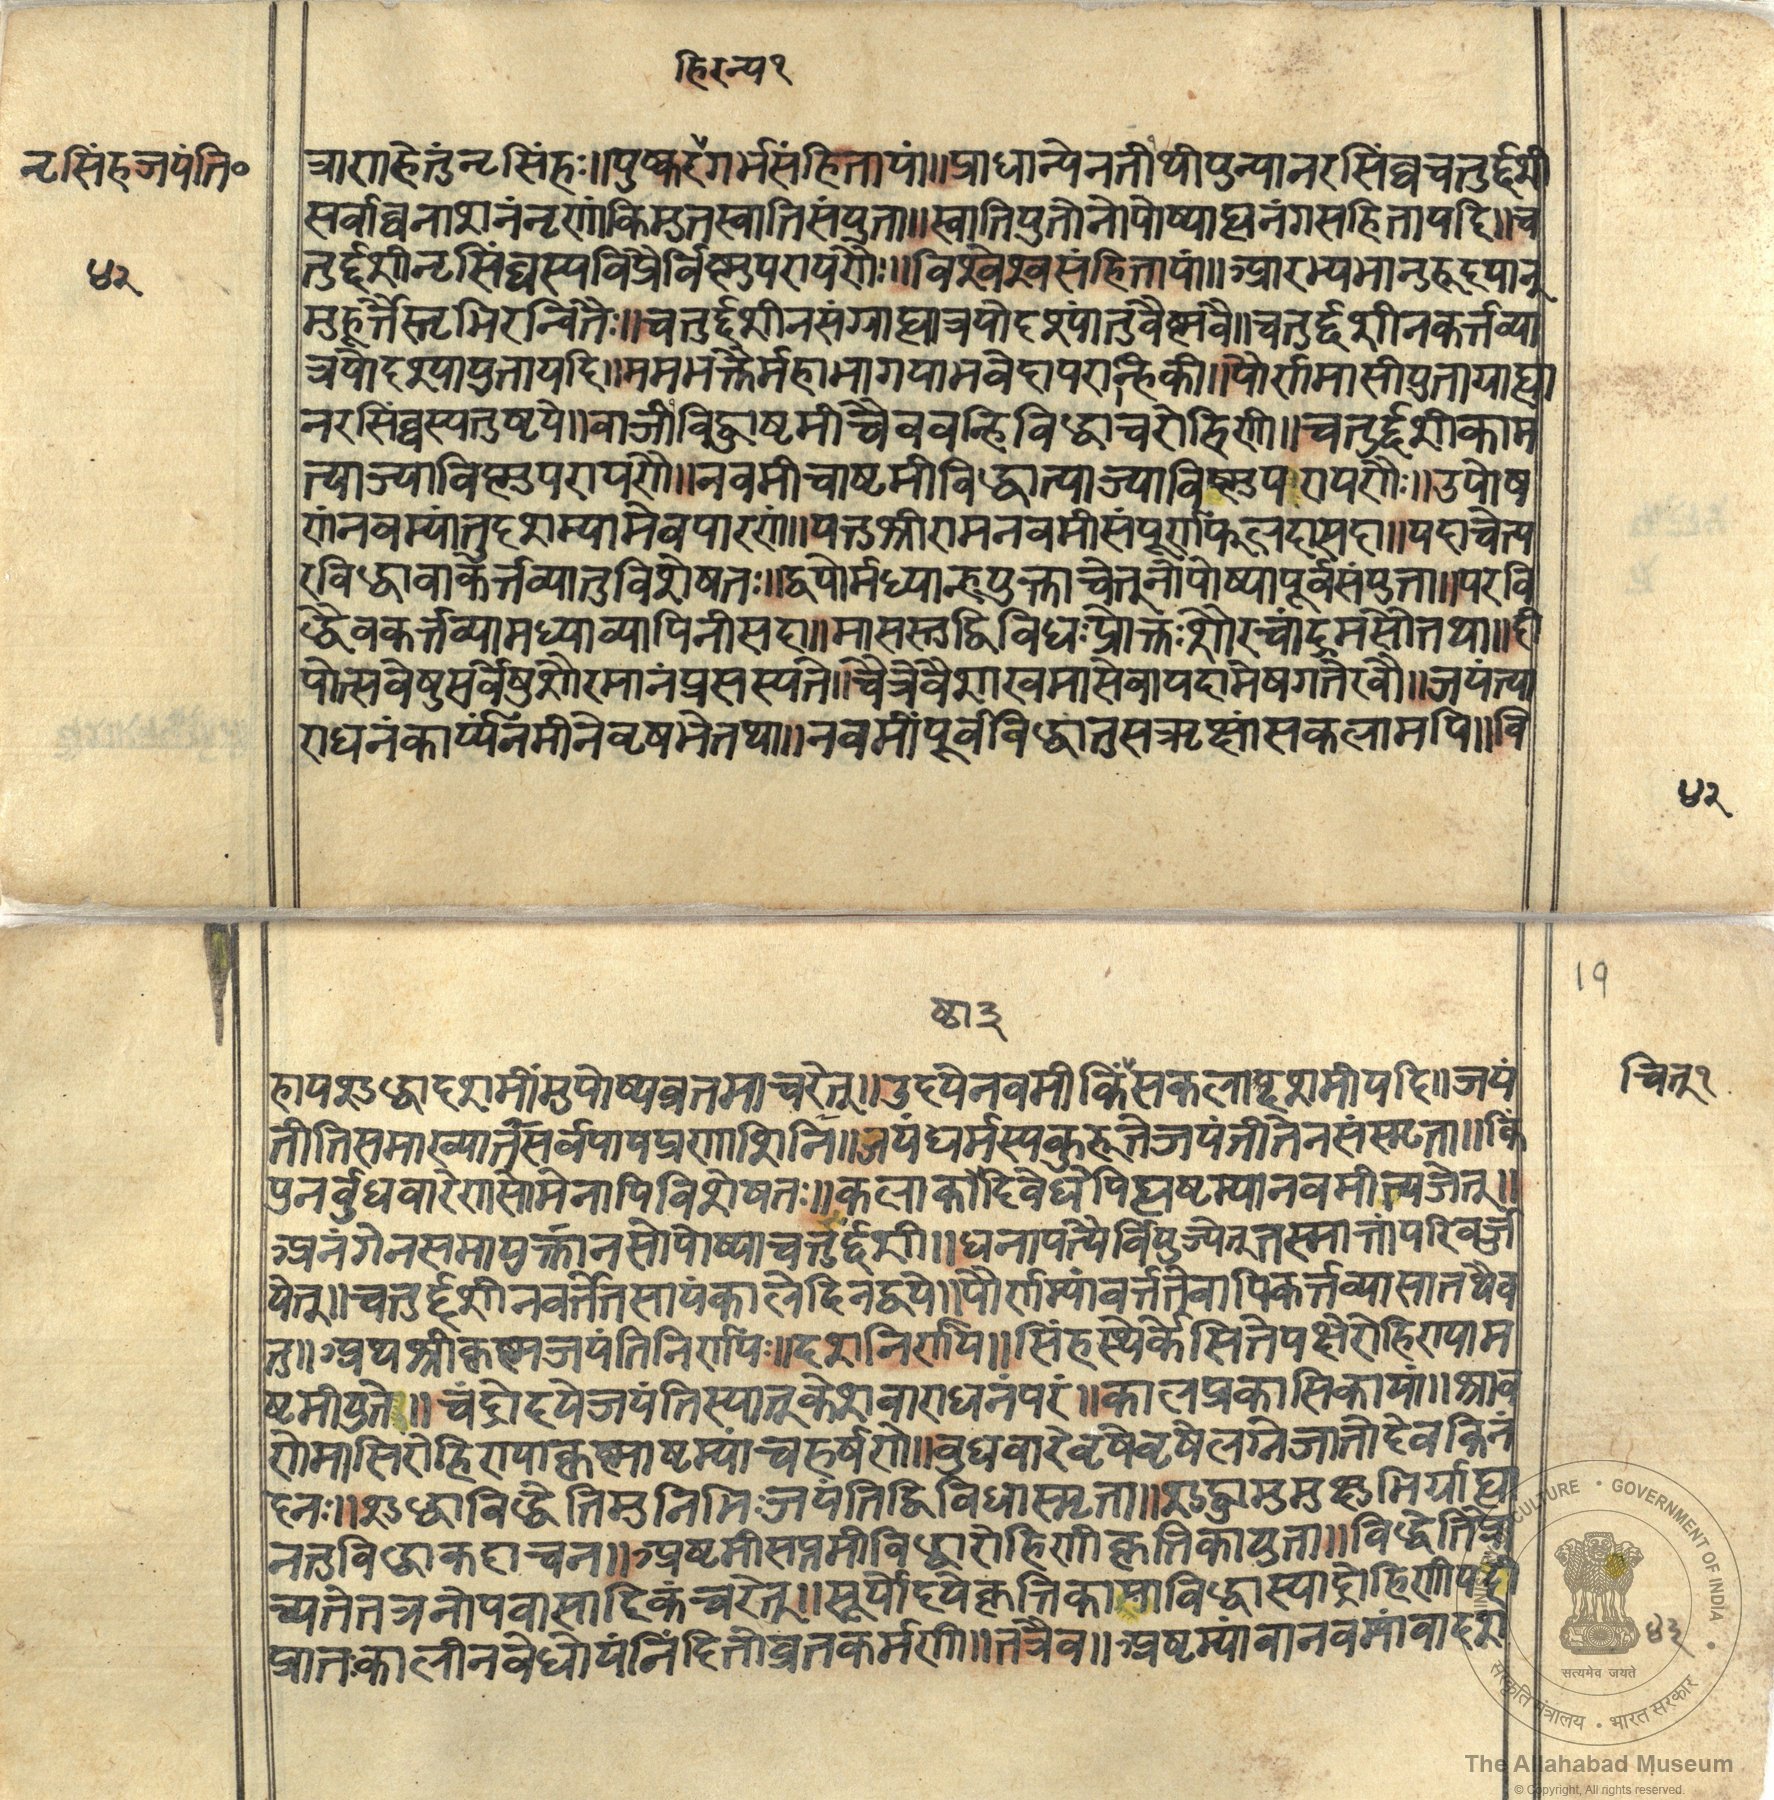 हिरन्य१
नृसिंहजयंति०
४२
त्राणाहेतुंनृसिंहः॥पुष्करगर्भसंहितायां॥प्राधान्येनतीथीपुन्यानरसिंघ्वचतुर्द्दशी
सर्वाघ्वनाशनंनृणांकिमुतस्वातिसंयुता॥स्वातियुतोनोपोष्याह्यनंगसहितायदि॥च
तुर्द्दशीनृसिंघस्यविप्रैर्विष्णुपरायणैः॥विश्वेश्वसंहितायां॥आरभ्यभानुरुदयात्
मुहूर्त्तैस्तृभिरन्वितैः॥चतुर्द्दशीनसंग्याह्यात्रयोदश्यांतुवैष्णवै॥चतुर्द्दशीनकर्त्तव्या
त्रयोदश्यायुतायदि॥ममभक्तैर्महाभागयाभवेदापरान्हिकी॥पौर्णमासीयुतायाह्या
नरसिंघ्वस्यतुष्टये॥वाजीविद्धाष्टमीचैववन्हिविद्धाचरोहिणी॥चतुर्द्दशीकाम
त्याज्याविष्णुपरायणै॥नवमीचाष्टमीविद्धात्याज्याविष्णुपरायणैः॥उपोष
णंनवम्यांतुदशम्यामेवपारणं॥यत्तुश्रीरामनवमीसंपूर्णाफलदासदा॥यदाचेत्प
रविद्धावाकर्त्तव्यातुविशेषतः॥द्वयोर्मध्यान्हयुक्ताचेत्तुनोपोष्यापूर्वसंयुता॥परवि
द्धैवकर्त्तव्यामध्याव्यापिनीसदा॥मासस्तुद्विविधःप्रोक्तःशौरचांद्रमसौतथा॥दी
पोत्सवेषुसर्वेषुशौरमानंप्रसस्यते॥चैत्रेवैशाखमासेवायदामेषगतेरवौ॥जयंत्या
राधनंकार्य्यंनमीनेवृषभेतथा॥नवमींपूर्वविद्धांतुसऋक्षांसकलामपि॥वि
४२
19
ष्ठा३
चित्१
हायशुद्धादशमींमुपोष्यव्रतमाचरेत्॥उदयेनवमीकिंसकलादशमीयदि॥जयं
तीतिसमाख्यातंसर्वपापप्रणाशिनि॥जयंधर्मस्यकुरुतेजयंतीतेनसंस्मृता॥किं
पुनर्वुधवारेणसोमेनापिविशेषतः॥कलाकाष्ठादिवेधेपिह्यष्टम्यानवमींत्यजेत्॥
अनंगेनसमायुक्तानसोपोष्याचतुर्द्दशी॥धनापत्यैर्वियुज्येततस्मात्तांपरिवर्ज
येत्॥चतुर्द्दशीनवर्त्तेतसायंकालेदिनद्वये॥पौर्णम्यांवर्त्ततेवापिकर्त्तव्यासातथैव
तु॥अथश्रीकृष्णजयंतिनिर्णयः॥दशनिर्णये॥सिंहस्थेर्केसितेपक्षेरोहिणयाम
ष्टमीयुते॥चंद्रोदयेजयंतिस्यात्केशवाराधनंपरं॥कालप्रकासिकायां॥श्राव
णेमासिरोहिणयाकृष्णाष्टम्यांचहर्षणे॥वुधवारेवृषेवृषेलग्नेजातोदेवकिनं
दनः॥शुद्धाविद्धेतिमुनिभिःजयंतिद्विविधास्मृता॥शुद्धामुमुक्षुभिर्याह्या
नतुविद्धाकदाचन॥अष्टमीसप्तमीविद्धारोहिणीकृत्तिकायुता॥विद्धेतिप्रो
च्यतेतत्रनोपवासादिकंचरेत्॥सूर्योदयेकृत्तिकायाविद्धास्याद्रोहिणीयदी
प्रातःकालीनवेधोयंनिंदितोव्रतकर्मणी॥तत्रैव॥अष्टम्यांवानवम्यांवादश
४३
MINISTRY OF CULTURE • GOVERNMENT OF INDIA
सत्यमेव जयते
संस्कृति मंत्रालय • भारत सरकार
The Allahabad Museum
© Copyright, All rights reserved.